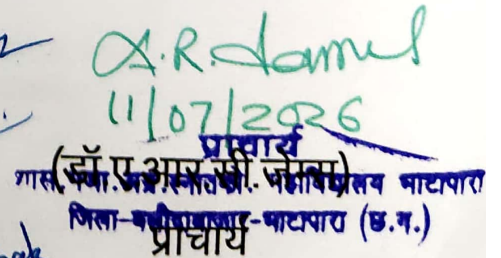 A.R. James
11/07/2026
प्राचार्य
(डॉ ए आर सी जेम्स)
शास. महाविद्यालय भाटापारा
जिला-बलौदाबाजार-भाटापारा (छ.ग.)
प्राचार्य